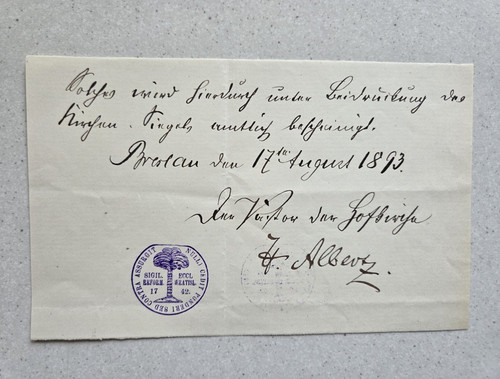 Solches wird hierdurch unter Beidrückung des
Kirchen-Siegels amtlich bescheinigt.
Breslau den 17ten August 1893.
Der Pastor der Hofkirche
H. Albertz.
NULLI CEDIT PONDERI SED CONTRA ASSURGIT
SIGIL. ECCL.
REFORM. WRATISL.
17 42.